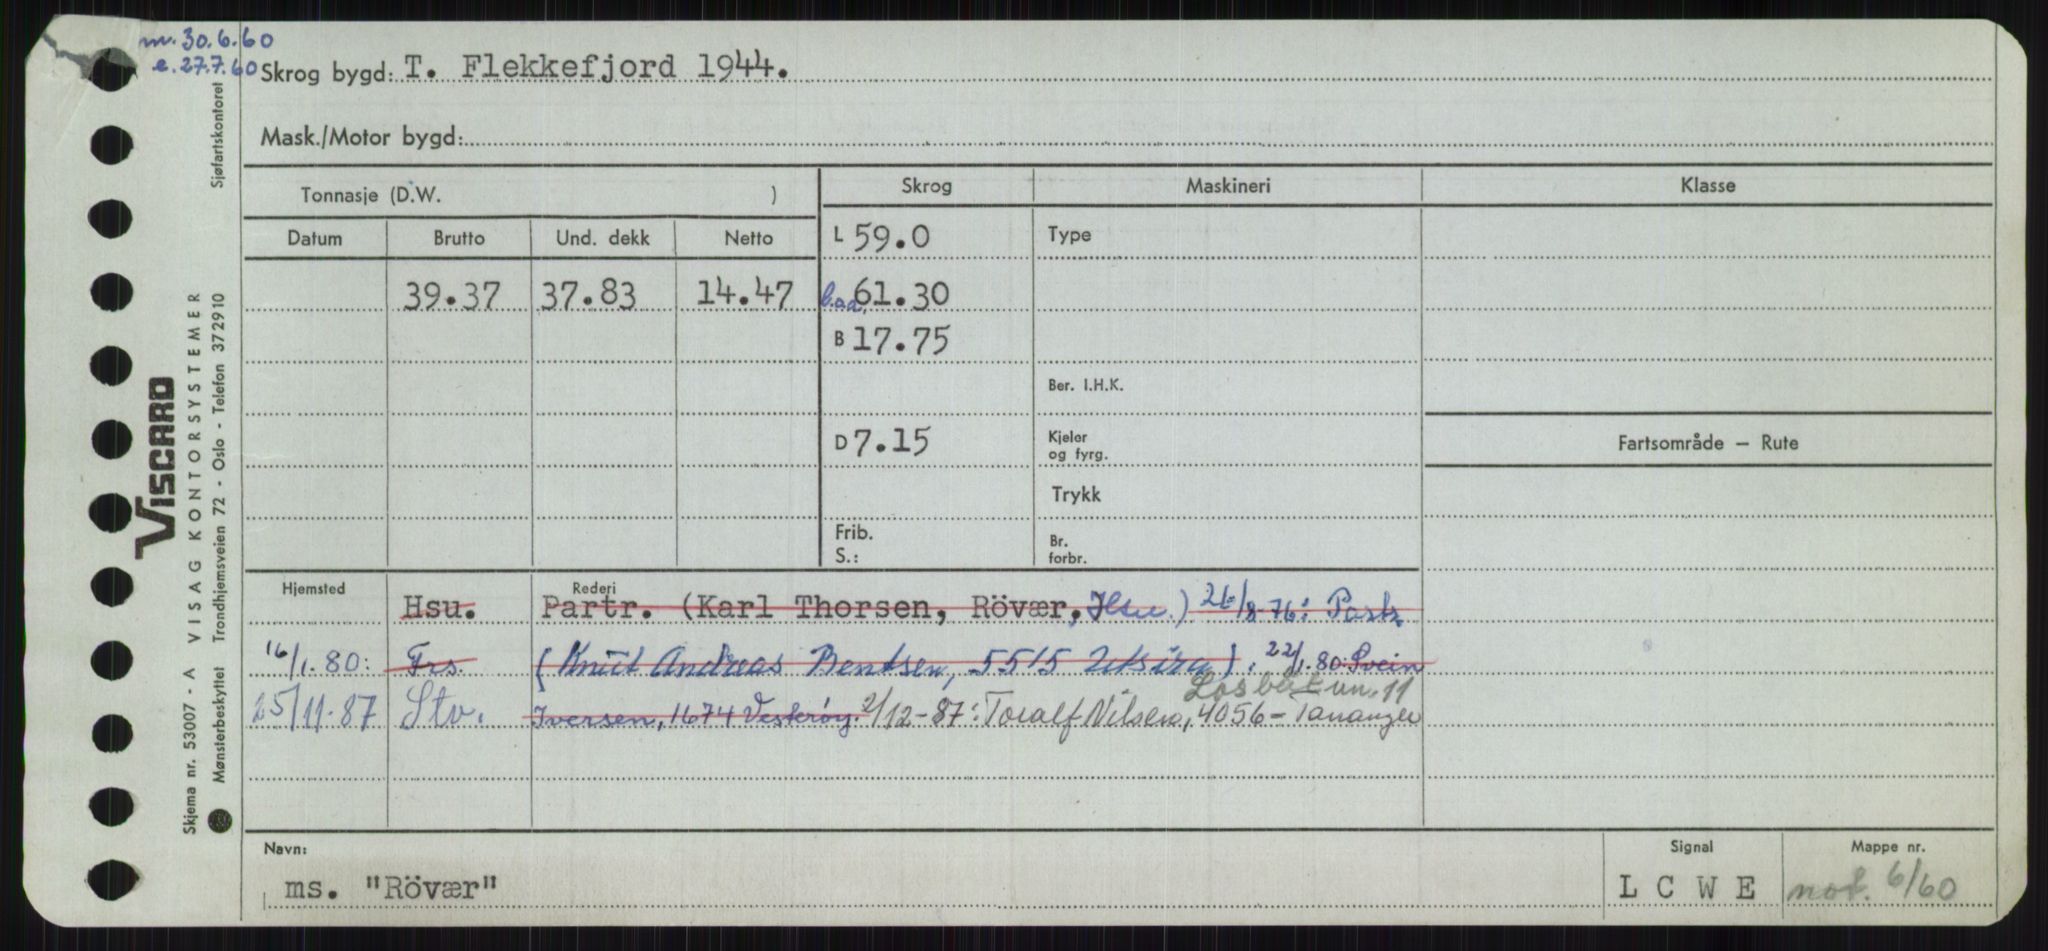 m. 30.6.60
e. 27.7.60
Skrog bygd: T. Flekkefjord 1944.
Mask./Motor bygd:
Tonnasje (D.W. )
Skrog
Maskineri
Klasse
Datum
Brutto
Und. dekk
Netto
L 59.0
Type
39.37
37.83
14.47
b.a.a. 61.30
B 17.75
Ber. I.H.K.
D 7.15
Kjeler
og fyrg.
Fartsområde – Rute
Trykk
Frib.
S.:
Br.
forbr.
Hjemsted
Rederi
Hsu.
Partr. (Karl Thorsen, Rövær, Hsu.) 26/8-76: Partr.
16/1.80:
Frs.
(Knut Andreas Bentsen, 5515 Utsira). 22/1.80: Svein
Losbåt nr. 11
25/11-87
Stv.
Iversen, 1674 Vesterøy. 2/12-87: Toralf Nilsen, 4056 - Tananger
Navn:
ms. "Rövær"
Signal
L C W E
Mappe nr.
not. 6/60
Skjema nr. 53007 - A VISAG KONTORSYSTEMER
Mønsterbeskyttet Trondhjemsveien 72 - Oslo - Telefon 372910
Sjøfartskontoret
VISCARD